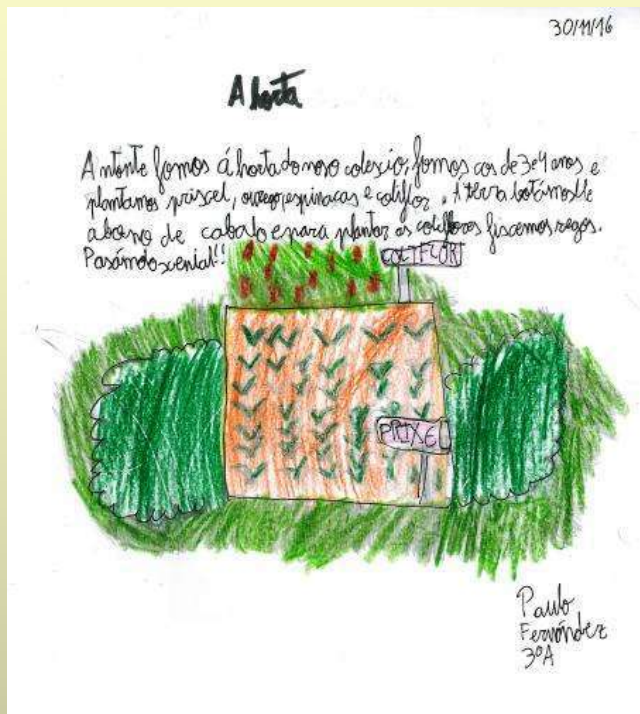 30/11/16
A horta
Antonte fomos á horta do noso colexio, fomos cos de 3 e 4 anos e
plantamos prixel, espinacas e coliflor. A terra botámoslle
abono de cabalo e para plantar as coliflores fixemos regos.
Pasámolo xenial!!
COLIFLOR
PRIXEL
Paulo
Fernández
3ºA